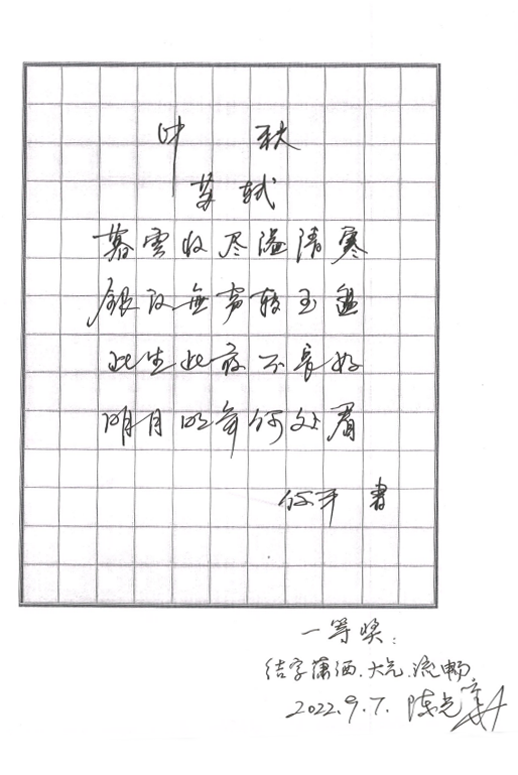 中 秋
苏 轼
暮雲收尽溢清寒
银汉無声转玉盘
此生此夜不長好
明月明年何处看
何平 書
一等奖：
结字潇洒、大气、流畅
2022.9.7. 陈光